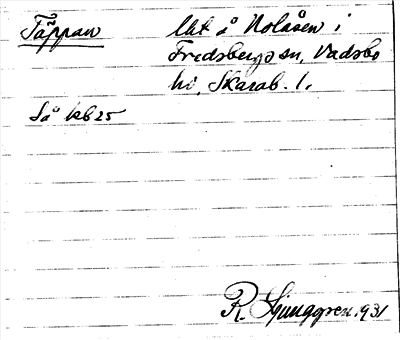 Täppan lht å Nolåsen i
Fredsbergs sn, Vadsbo
hd, Skarab. l.
Så kb 25
R. Ljunggren 1931